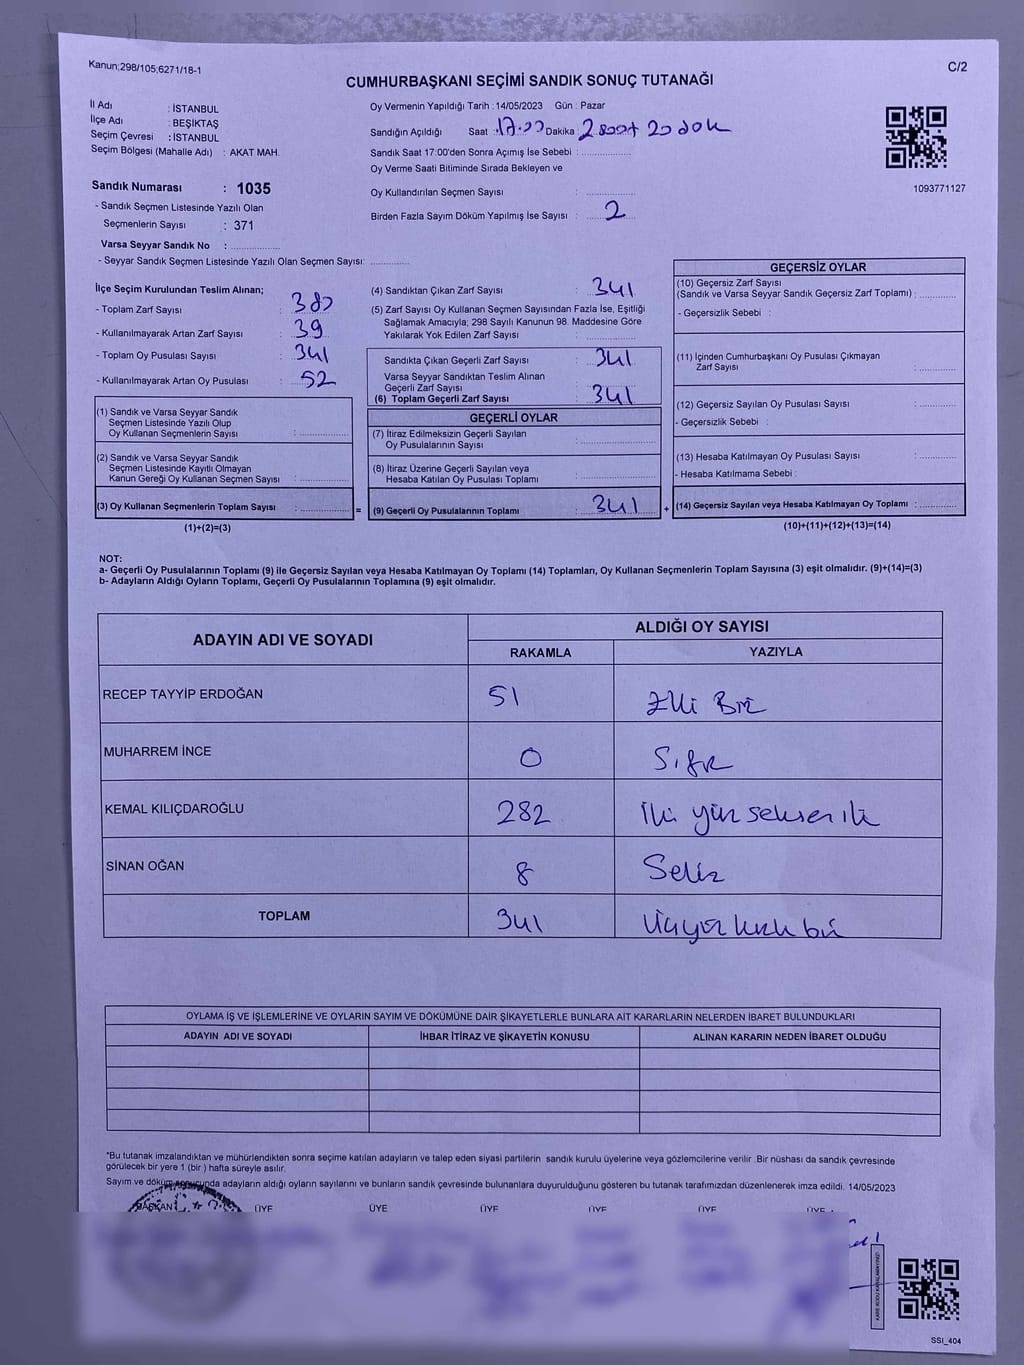 Kanun;298/105;6271/18-1
C/2
CUMHURBAŞKANI SEÇİMİ SANDIK SONUÇ TUTANAĞI
İl Adı : İSTANBUL
İlçe Adı : BEŞİKTAŞ
Seçim Çevresi : İSTANBUL
Seçim Bölgesi (Mahalle Adı) : AKAT MAH.
Oy Vermenin Yapıldığı Tarih : 14/05/2023 Gün : Pazar
Sandığın Açıldığı Saat : 17.00 Dakika : 2 saat 20 dak
Sandık Saat 17:00'den Sonra Açımış İse Sebebi :
Oy Verme Saati Bitiminde Sırada Bekleyen ve
Oy Kullandırılan Seçmen Sayısı :
Birden Fazla Sayım Döküm Yapılmış İse Sayısı : 2
1093771127
Sandık Numarası : 1035
- Sandık Seçmen Listesinde Yazılı Olan
Seçmenlerin Sayısı : 371
Varsa Seyyar Sandık No :
- Seyyar Sandık Seçmen Listesinde Yazılı Olan Seçmen Sayısı:
İlçe Seçim Kurulundan Teslim Alınan;
- Toplam Zarf Sayısı : 380
- Kullanılmayarak Artan Zarf Sayısı : 39
- Toplam Oy Pusulası Sayısı : 341
- Kullanılmayarak Artan Oy Pusulası : 52
(1) Sandık ve Varsa Seyyar Sandık
Seçmen Listesinde Yazılı Olup
Oy Kullanan Seçmenlerin Sayısı :
(2) Sandık ve Varsa Seyyar Sandık
Seçmen Listesinde Kayıtlı Olmayan
Kanun Gereği Oy Kullanan Seçmen Sayısı :
(3) Oy Kullanan Seçmenlerin Toplam Sayısı :
(1)+(2)=(3)
=
(4) Sandıktan Çıkan Zarf Sayısı : 341
(5) Zarf Sayısı Oy Kullanan Seçmen Sayısından Fazla İse, Eşitliği
Sağlamak Amacıyla; 298 Sayılı Kanunun 98. Maddesine Göre
Yakılarak Yok Edilen Zarf Sayısı :
Sandıkta Çıkan Geçerli Zarf Sayısı : 341
Varsa Seyyar Sandıktan Teslim Alınan
Geçerli Zarf Sayısı :
(6) Toplam Geçerli Zarf Sayısı : 341
GEÇERLİ OYLAR
(7) İtiraz Edilmeksizin Geçerli Sayılan
Oy Pusulalarının Sayısı :
(8) İtiraz Üzerine Geçerli Sayılan veya
Hesaba Katılan Oy Pusulası Toplamı :
(9) Geçerli Oy Pusulalarının Toplamı : 341
+
GEÇERSİZ OYLAR
(10) Geçersiz Zarf Sayısı
(Sandık ve Varsa Seyyar Sandık Geçersiz Zarf Toplamı) :
- Geçersizlik Sebebi :
(11) İçinden Cumhurbaşkanı Oy Pusulası Çıkmayan
Zarf Sayısı :
(12) Geçersiz Sayılan Oy Pusulası Sayısı :
- Geçersizlik Sebebi :
(13) Hesaba Katılmayan Oy Pusulası Sayısı :
- Hesaba Katılmama Sebebi :
(14) Geçersiz Sayılan veya Hesaba Katılmayan Oy Toplamı :
(10)+(11)+(12)+(13)=(14)
NOT:
a- Geçerli Oy Pusulalarının Toplamı (9) ile Geçersiz Sayılan veya Hesaba Katılmayan Oy Toplamı (14) Toplamları, Oy Kullanan Seçmenlerin Toplam Sayısına (3) eşit olmalıdır. (9)+(14)=(3)
b- Adayların Aldığı Oyların Toplamı, Geçerli Oy Pusulalarının Toplamına (9) eşit olmalıdır.
ADAYIN ADI VE SOYADI
ALDIĞI OY SAYISI
RAKAMLA YAZIYLA
RECEP TAYYİP ERDOĞAN 51 Elli Bir
MUHARREM İNCE 0 Sıfır
KEMAL KILIÇDAROĞLU 282 İki yüz seksen iki
SİNAN OĞAN 8 Sekiz
TOPLAM 341 Üçyüz kırk bir
OYLAMA İŞ VE İŞLEMLERİNE VE OYLARIN SAYIM VE DÖKÜMÜNE DAİR ŞİKAYETLERLE BUNLARA AİT KARARLARIN NELERDEN İBARET BULUNDUKLARI
ADAYIN ADI VE SOYADI İHBAR İTİRAZ VE ŞİKAYETİN KONUSU ALINAN KARARIN NEDEN İBARET OLDUĞU
*Bu tutanak imzalandıktan ve mühürlendikten sonra seçime katılan adayların ve talep eden siyasi partilerin sandık kurulu üyelerine veya gözlemcilerine verilir .Bir nüshası da sandık çevresinde
görülecek bir yere 1 (bir ) hafta süreyle asılır.
Sayım ve döküm sonucunda adayların aldığı oyların sayılarını ve bunların sandık çevresinde bulunanlara duyurulduğunu gösteren bu tutanak tarafımızdan düzenlenerek imza edildi. 14/05/2023
BAŞKAN ÜYE ÜYE ÜYE ÜYE ÜYE ÜYE
SSI_404